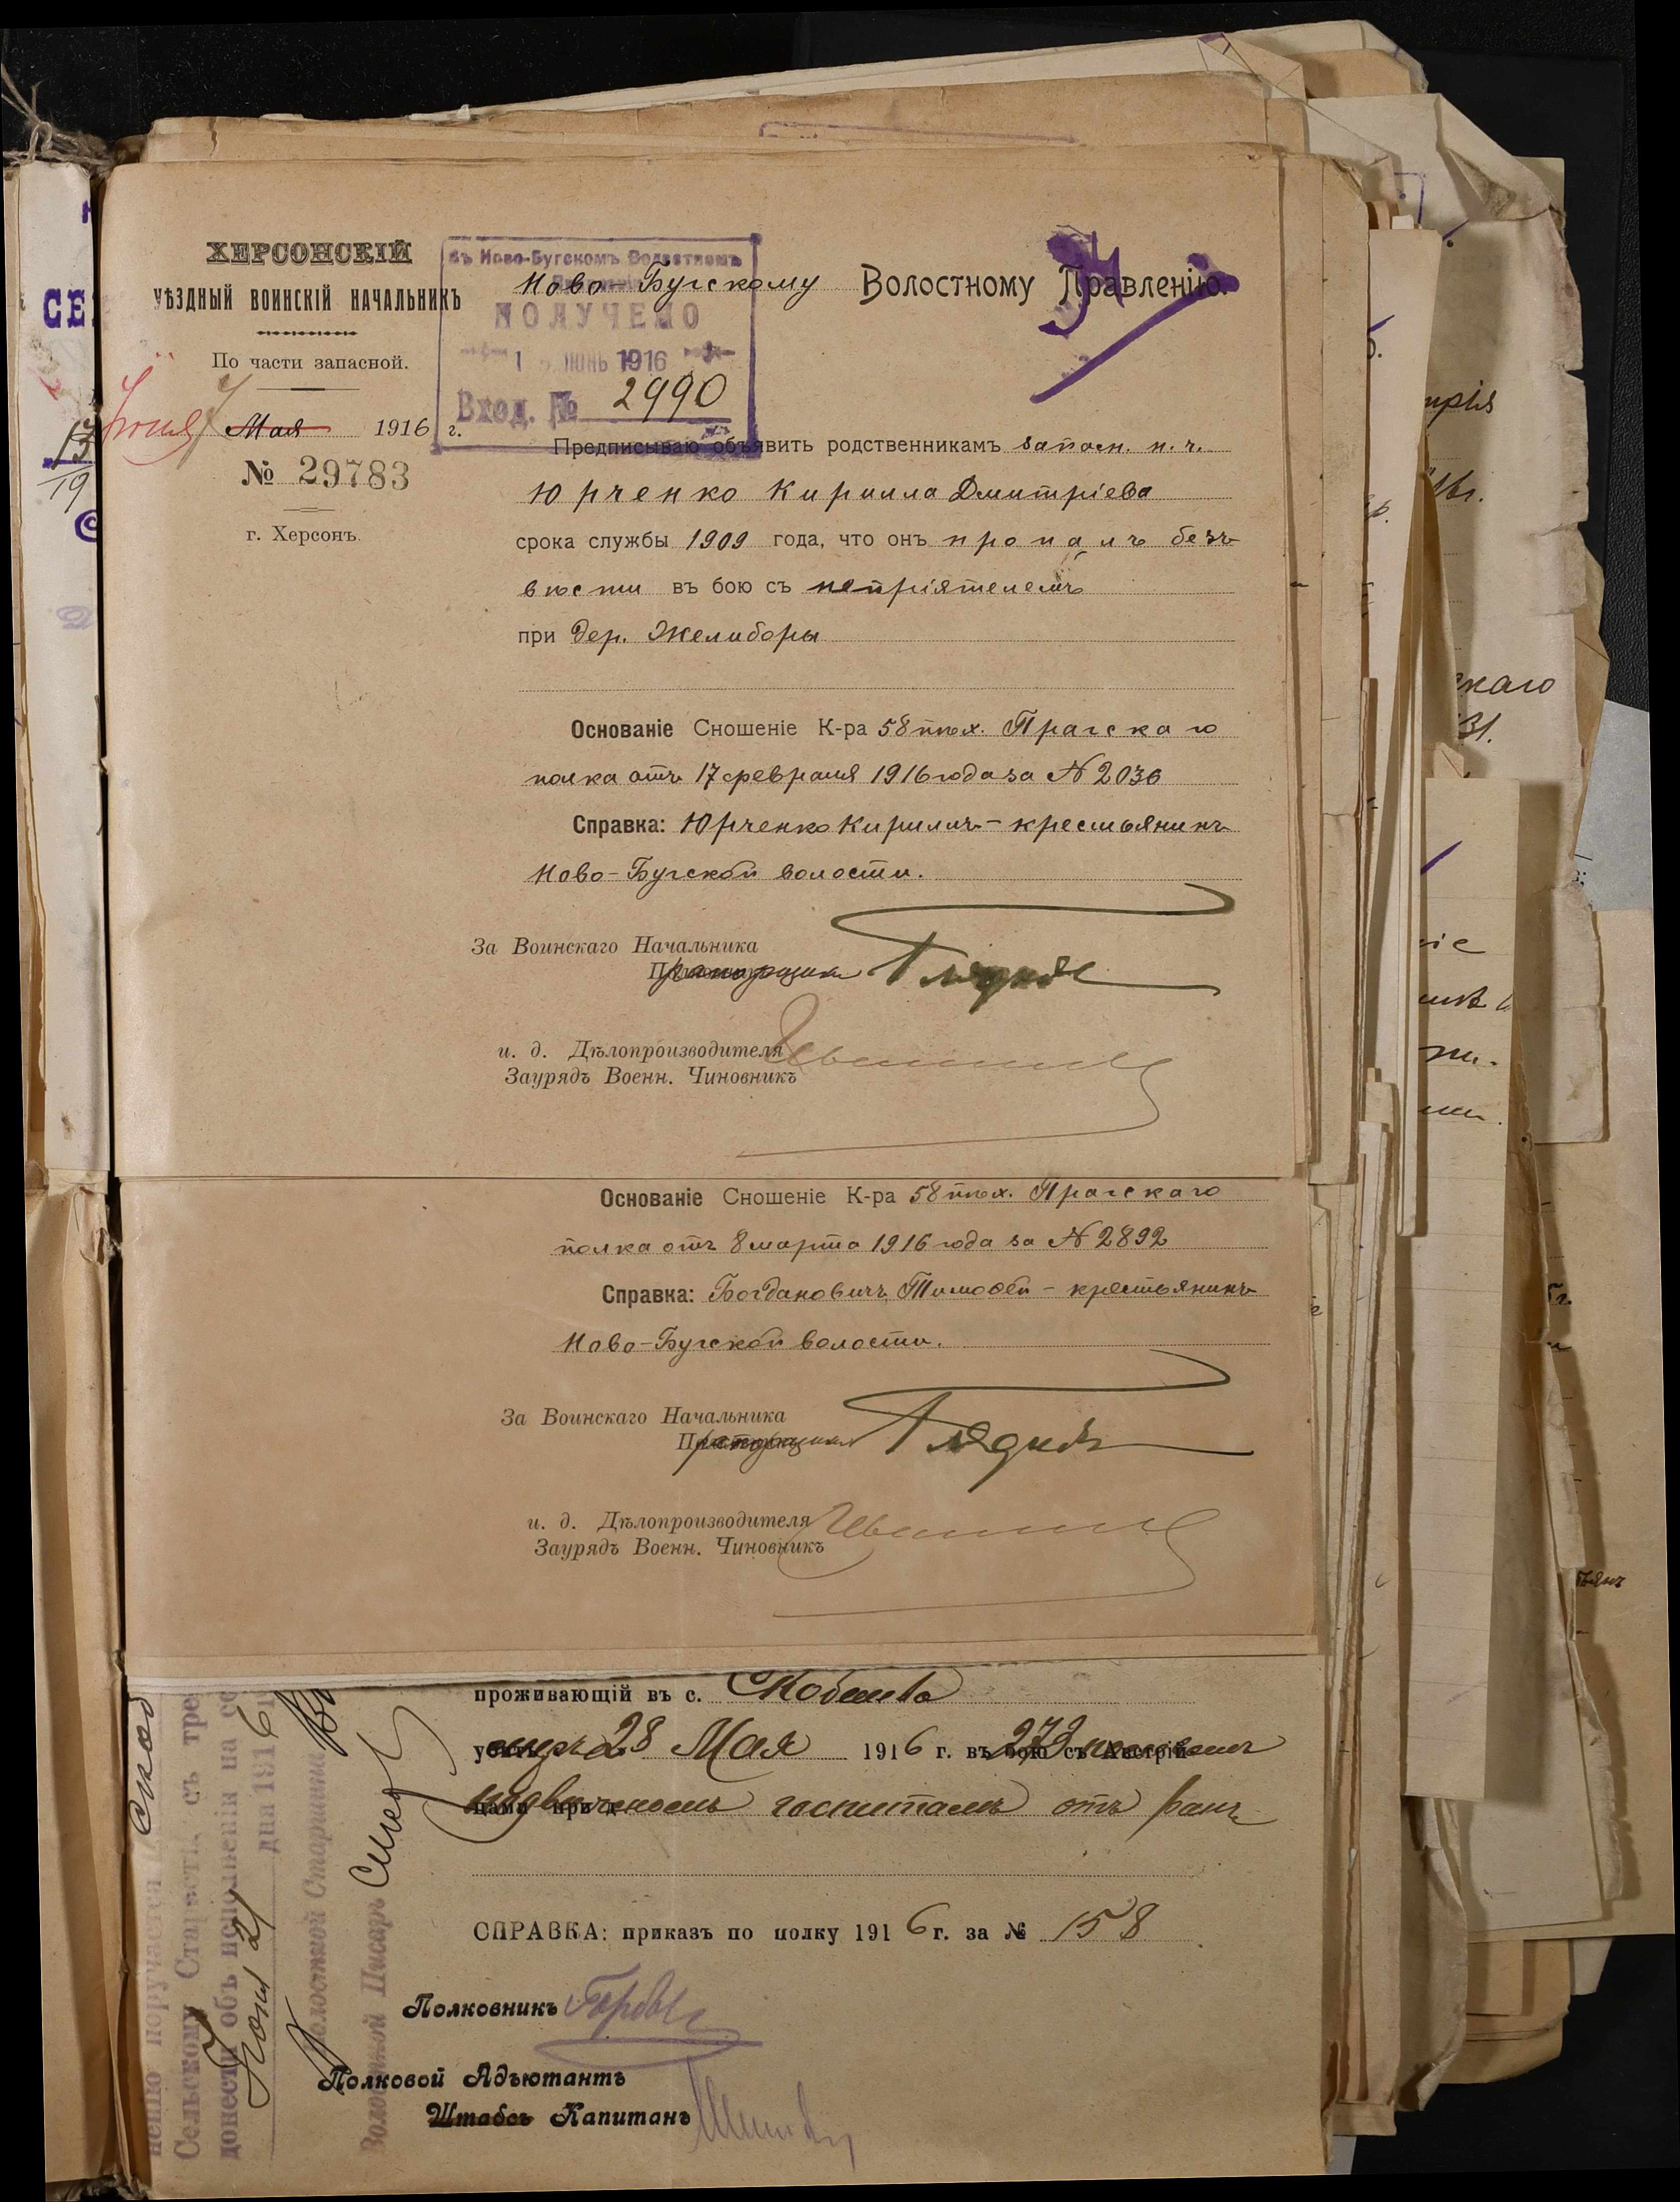 ХЕРСОНСКІЙ
УѢЗДНЫЙ ВОИНСКІЙ НАЧАЛЬНИКЪ
По части запасной.
Іюня 7 Мая 1916 г.
№ 29783
г. Херсонъ.
въ Ново-Бугскомъ Волостномъ
ПОЛУЧЕНО
1 ІЮНЬ 1916
Вход. № 2990
Ново-Бугскому Волостному Правленію.
Предписываю объявить родственникамъ запасн. н. ч.
Юрченко Кирилла Дмитріева
срока службы 1909 года, что онъ пропалъ безъ
вѣсти въ бою съ непріятелемъ
при дер. Желиборы
Основаніе Сношеніе К-ра 58 пѣх. Прагскаго
полка отъ 17 февраля 1916 года за № 2036
Справка: Юрченко Кириллъ - крестьянинъ
Ново-Бугской волости.
За Воинскаго Начальника
Прапорщикъ
и. д. Дѣлопроизводителя
Заурядъ Военн. Чиновникъ
Основаніе Сношеніе К-ра 58 пѣх. Прагскаго
полка отъ 8 марта 1916 года за № 2892
Справка: Богдановичъ Тимофей - крестьянинъ
Ново-Бугской волости.
За Воинскаго Начальника
Прапорщикъ
и. д. Дѣлопроизводителя
Заурядъ Военн. Чиновникъ
проживающій въ с.
28 Мая 1916 г. въ бою съ Австрій
цами при д госпиталѣ отъ ранъ
СПРАВКА: приказъ по полку 1916 г. за № 158
Полковникъ
Полковой Адъютантъ
Штабсъ Капитанъ
поручается
Сельскому Старостѣ съ тре
донести объ исполненіи на се
Іюня 21 дня 1916
Волостной Старшина
Волостной Писарь